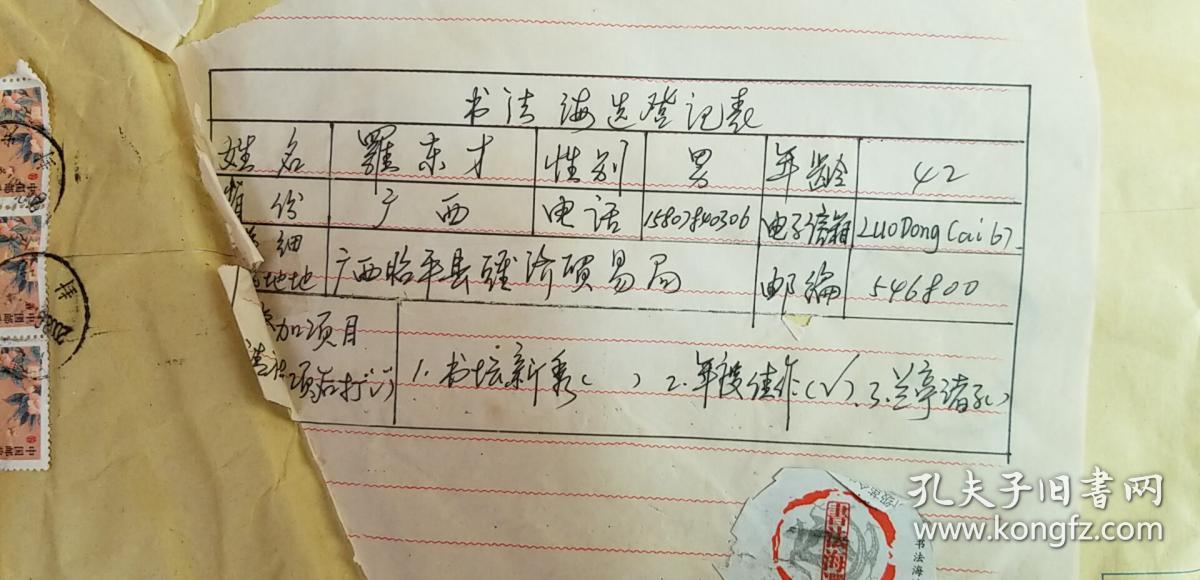 书法海选登记表
姓名 羅东才 性别 男 年龄 42
省份 广西 电话 15807840306 电子信箱 LuoDongCai67
详细地址 广西昭平县经济贸易局 邮编 546800
参加项目
请在项后打(√) 1.书坛新秀( ) 2.年度佳作(√) 3.兰亭诸子( )
中国邮政
書法海選
书法海
孔夫子旧书网
www.kongfz.com